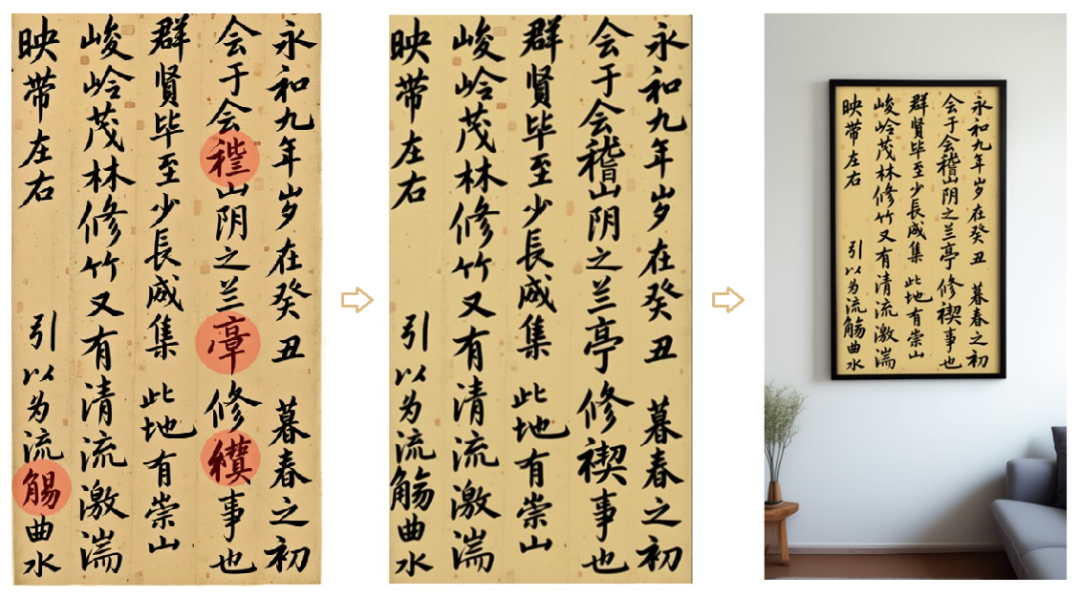 永和九年岁在癸丑 暮春之初
会于会山阴之兰修事也
群賢毕至少長咸集 此地有崇山
峻岭茂林修竹又有清流激湍
映带左右 引以为流曲水
永和九年岁在癸丑 暮春之初
会于会稽山阴之兰亭修禊事也
群賢毕至少長咸集 此地有崇山
峻岭茂林修竹又有清流激湍
映带左右 引以为流觞曲水
永和九年岁在癸丑 暮春之初
会于会稽山阴之兰亭修禊事也
群賢毕至少長咸集 此地有崇山
峻岭茂林修竹又有清流激湍
映带左右 引以为流觞曲水